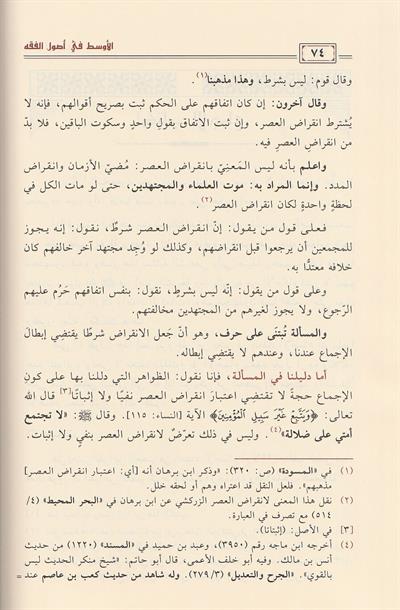 الأوسط في أصول الفقه
٧٤
وقال قوم: ليس بشرط، وهذا مذهبنا(١).
وقال آخرون: إن كان اتفاقهم على الحكم ثبت بصريح أقوالهم، فإنه لا
يُشترط انقراض العصر، وإن ثبت الاتفاق بقولِ واحدٍ وسكوت الباقين، فلا بدّ
من انقراضِ العصرِ فيه.
واعلم بأنه ليس المَعنِيّ بانقراض العصر: مُضيّ الأزمان وانقراض
المدد. وإنما المراد به: موت العلماء والمجتهدين، حتى لو مات الكل في
لحظةٍ واحدةٍ لكان انقراض العصر(٢).
فعلى قول من يقول: إنّ انقراض العصر شرطٌ، نقول: إنه يجوز
للمجمعين أن يرجعوا قبل انقراضهم، وكذلك لو وُجد مجتهد آخر خالفهم كان
خلافه معتدًّا به.
وعلى قول من يقول: إنّه ليس بشرطٍ، نقول: بنفس اتفاقهم حَرُم عليهم
الرّجوع، ولا يجوز لغيرهم من المجتهدين مخالفتهم.
والمسألة تُبتَنَى على حرف، وهو أنّ جَعل الانقراض شرطًا يقتضِي إبطالَ
الإجماع عندنا، وعندهم لا يقتضِي إبطاله.
أما دليلنا في المسألة، فإنا نقول: الظواهر التي دللنا بها على كونِ
الإجماع حجةً لا تقتضِي اعتبارَ انقراض العصر نفيًا ولا إثباتًا[٣] قال الله
تعالى: ﴿وَيَتَّبِعْ غَيْرَ سَبِيلِ الْمُؤْمِنِينَ﴾ الآية [النساء: ١١٥]. وقال ﷺ: «لا تجتمع
أمتي على ضلالة»(٤). وليس في ذلك تعرّضٌ لانقراض العصر بنفيٍ ولا إثبات.
(١) في «المسودة» (ص: ٣٢٠): «وذكر ابن برهان أنه [أي: اعتبار انقراض العصر]
مذهبهم». فلعل النقل قد اعتراه وهم أو لحقه خلل.
(٢) نقل هذا المعنى لانقراض العصر الزركشي عن ابن برهان في «البحر المحيط» (٤/
٥١٤) مع تصرف في العبارة.
[٣] في الأصل: (إثباتا).
(٤) أخرجه ابن ماجه رقم (٣٩٥٠)، وعبد بن حميد في «المسند» (١٢٢٠) من حديث
أنس بن مالك. وفيه أبو خلف الأعمى، قال أبو حاتم: «شيخ منكر الحديث ليس
بالقوي». «الجرح والتعديل» (٢٧٩/٣). وله شاهد من حديث كعب بن عاصم عند =